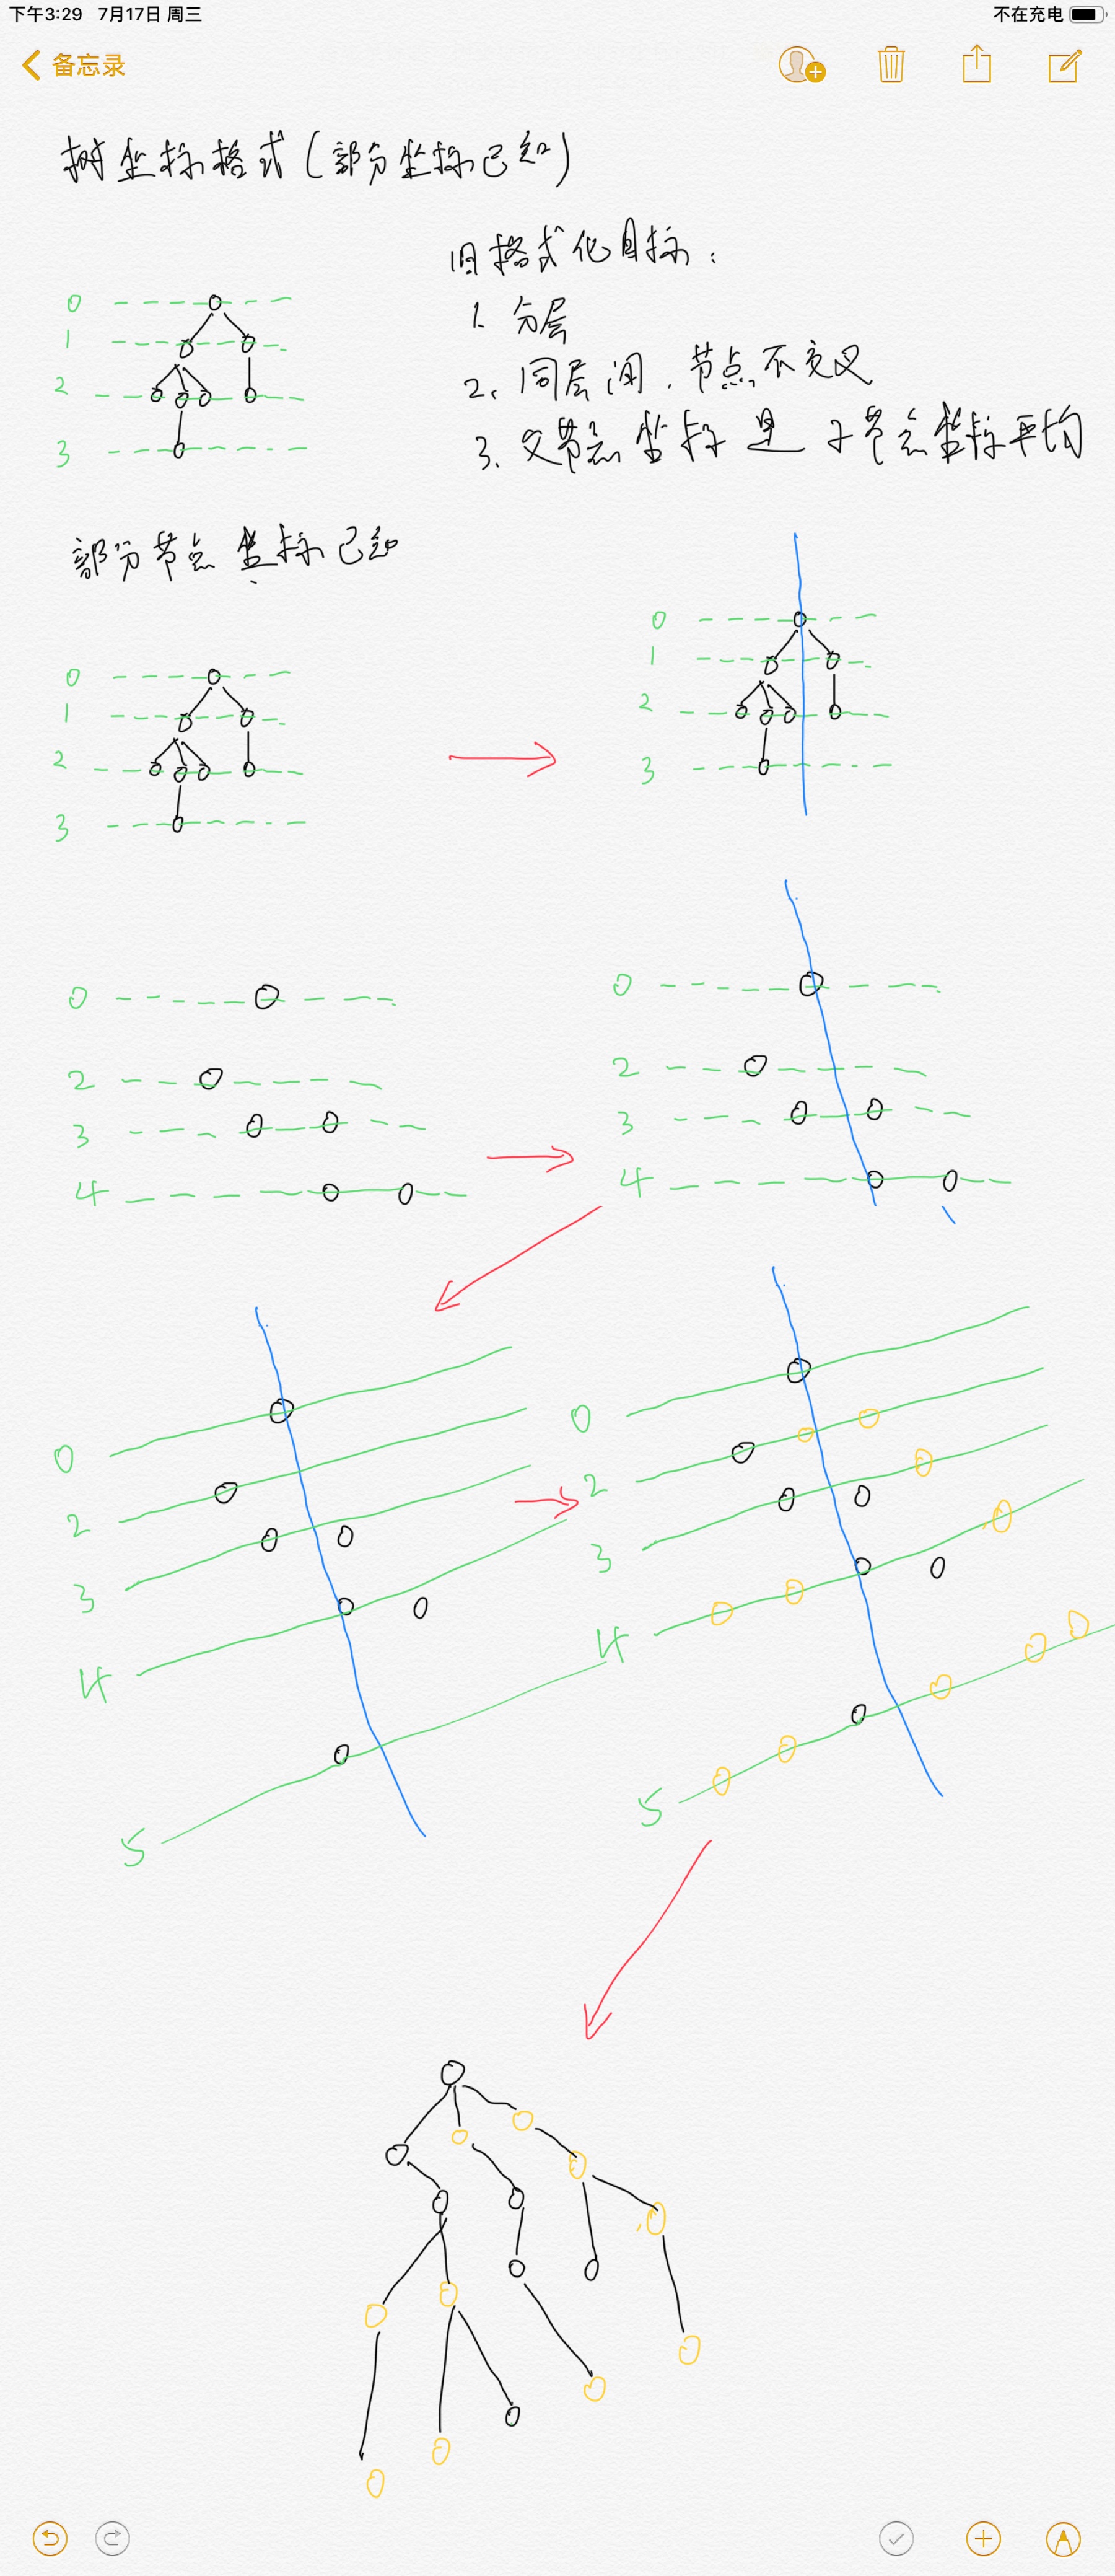 下午3:29 7月17日 周三 不在充电
备忘录
树坐标格式(部分坐标已知)
旧格式化目标:
1. 分层
2、同层间.节点不交叉
3、父节点坐标是子节点坐标平均
0
1
2
3
部分节点坐标已知
0
1
2
3
0
1
2
3
0
2
3
4
0
2
3
4
0
2
3
4
5
0
2
3
4
5